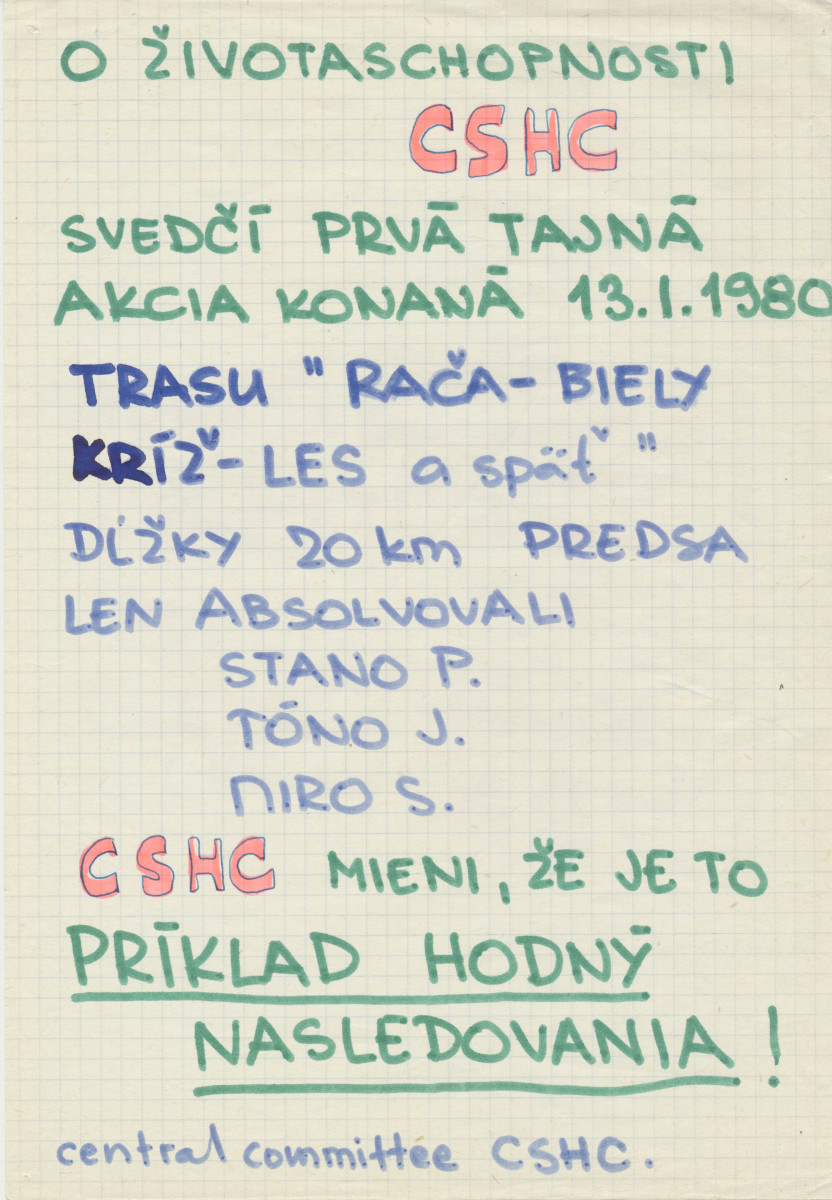 O ŽIVOTASCHOPNOSTI
CSHC
SVEDČÍ PRVÁ TAJNÁ
AKCIA KONANÁ 13.I.1980
TRASU "RAČA-BIELY
KRÍŽ-LES a späť"
DĹŽKY 20 km PREDSA
LEN ABSOLVOVALI
STANO P.
TÓNO J.
MIRO S.
CSHC MIENI, ŽE JE TO
PRÍKLAD HODNÝ
NASLEDOVANIA!
central committee CSHC.